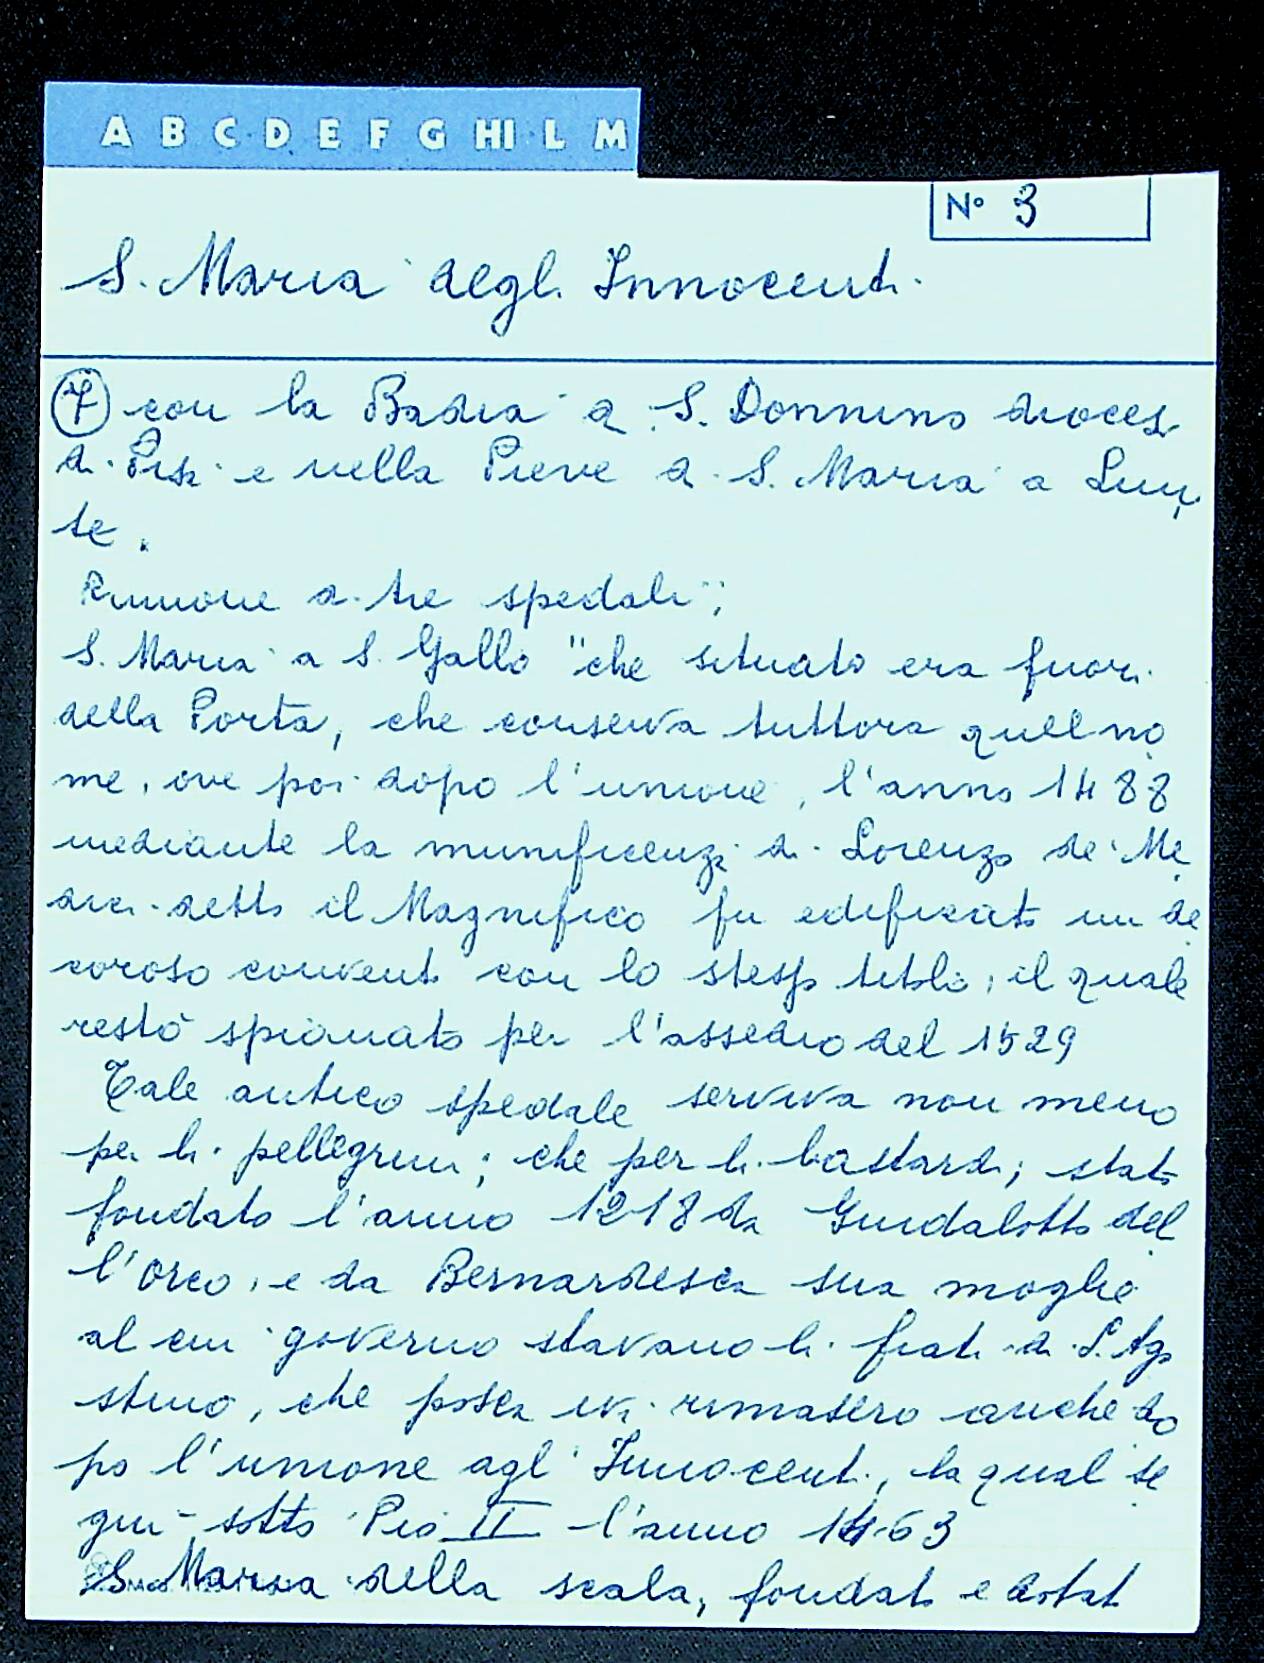 A B C D E F G HI L M
N° 3
S. Maria degli Innocenti
7 con la Badia di S. Donnino diocesi
di Pisa e nella Pieve di S. Maria a
te.
Riunione di tre spedali;
S. Maria a S. Gallo "che situato era fuori
della Porta, che conserva tuttora quel no
me, ove poi dopo l'unione, l'anno 1488
mediante la munificenza di Lorenzo de' Me
dici detto il Magnifico fu edificato un de
coroso convento con lo stesso titolo, il quale
restò spianato per l'assedio del 1529
Tale antico spedale serviva non meno
per li pellegrini; che per li bastardi; stato
fondato l'anno 1218 da Guidalotto del
l'Orco, e da Bernardesca sua moglie
al cui governo stavano li frati di S. Ago
stino, che poscia ivi rimasero anche do
po l'unione agl'Innocenti, la qual se
guì sotto Pio II l'anno 1463
S. Maria della scala, fondato e dotat